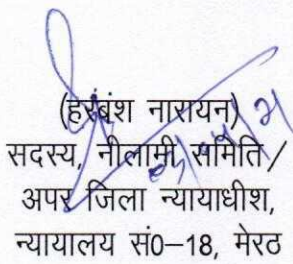 (हरबंश नारायन)
सदस्य, नीलामी समिति /
अपर जिला न्यायाधीश,
न्यायालय सं0-18, मेरठ